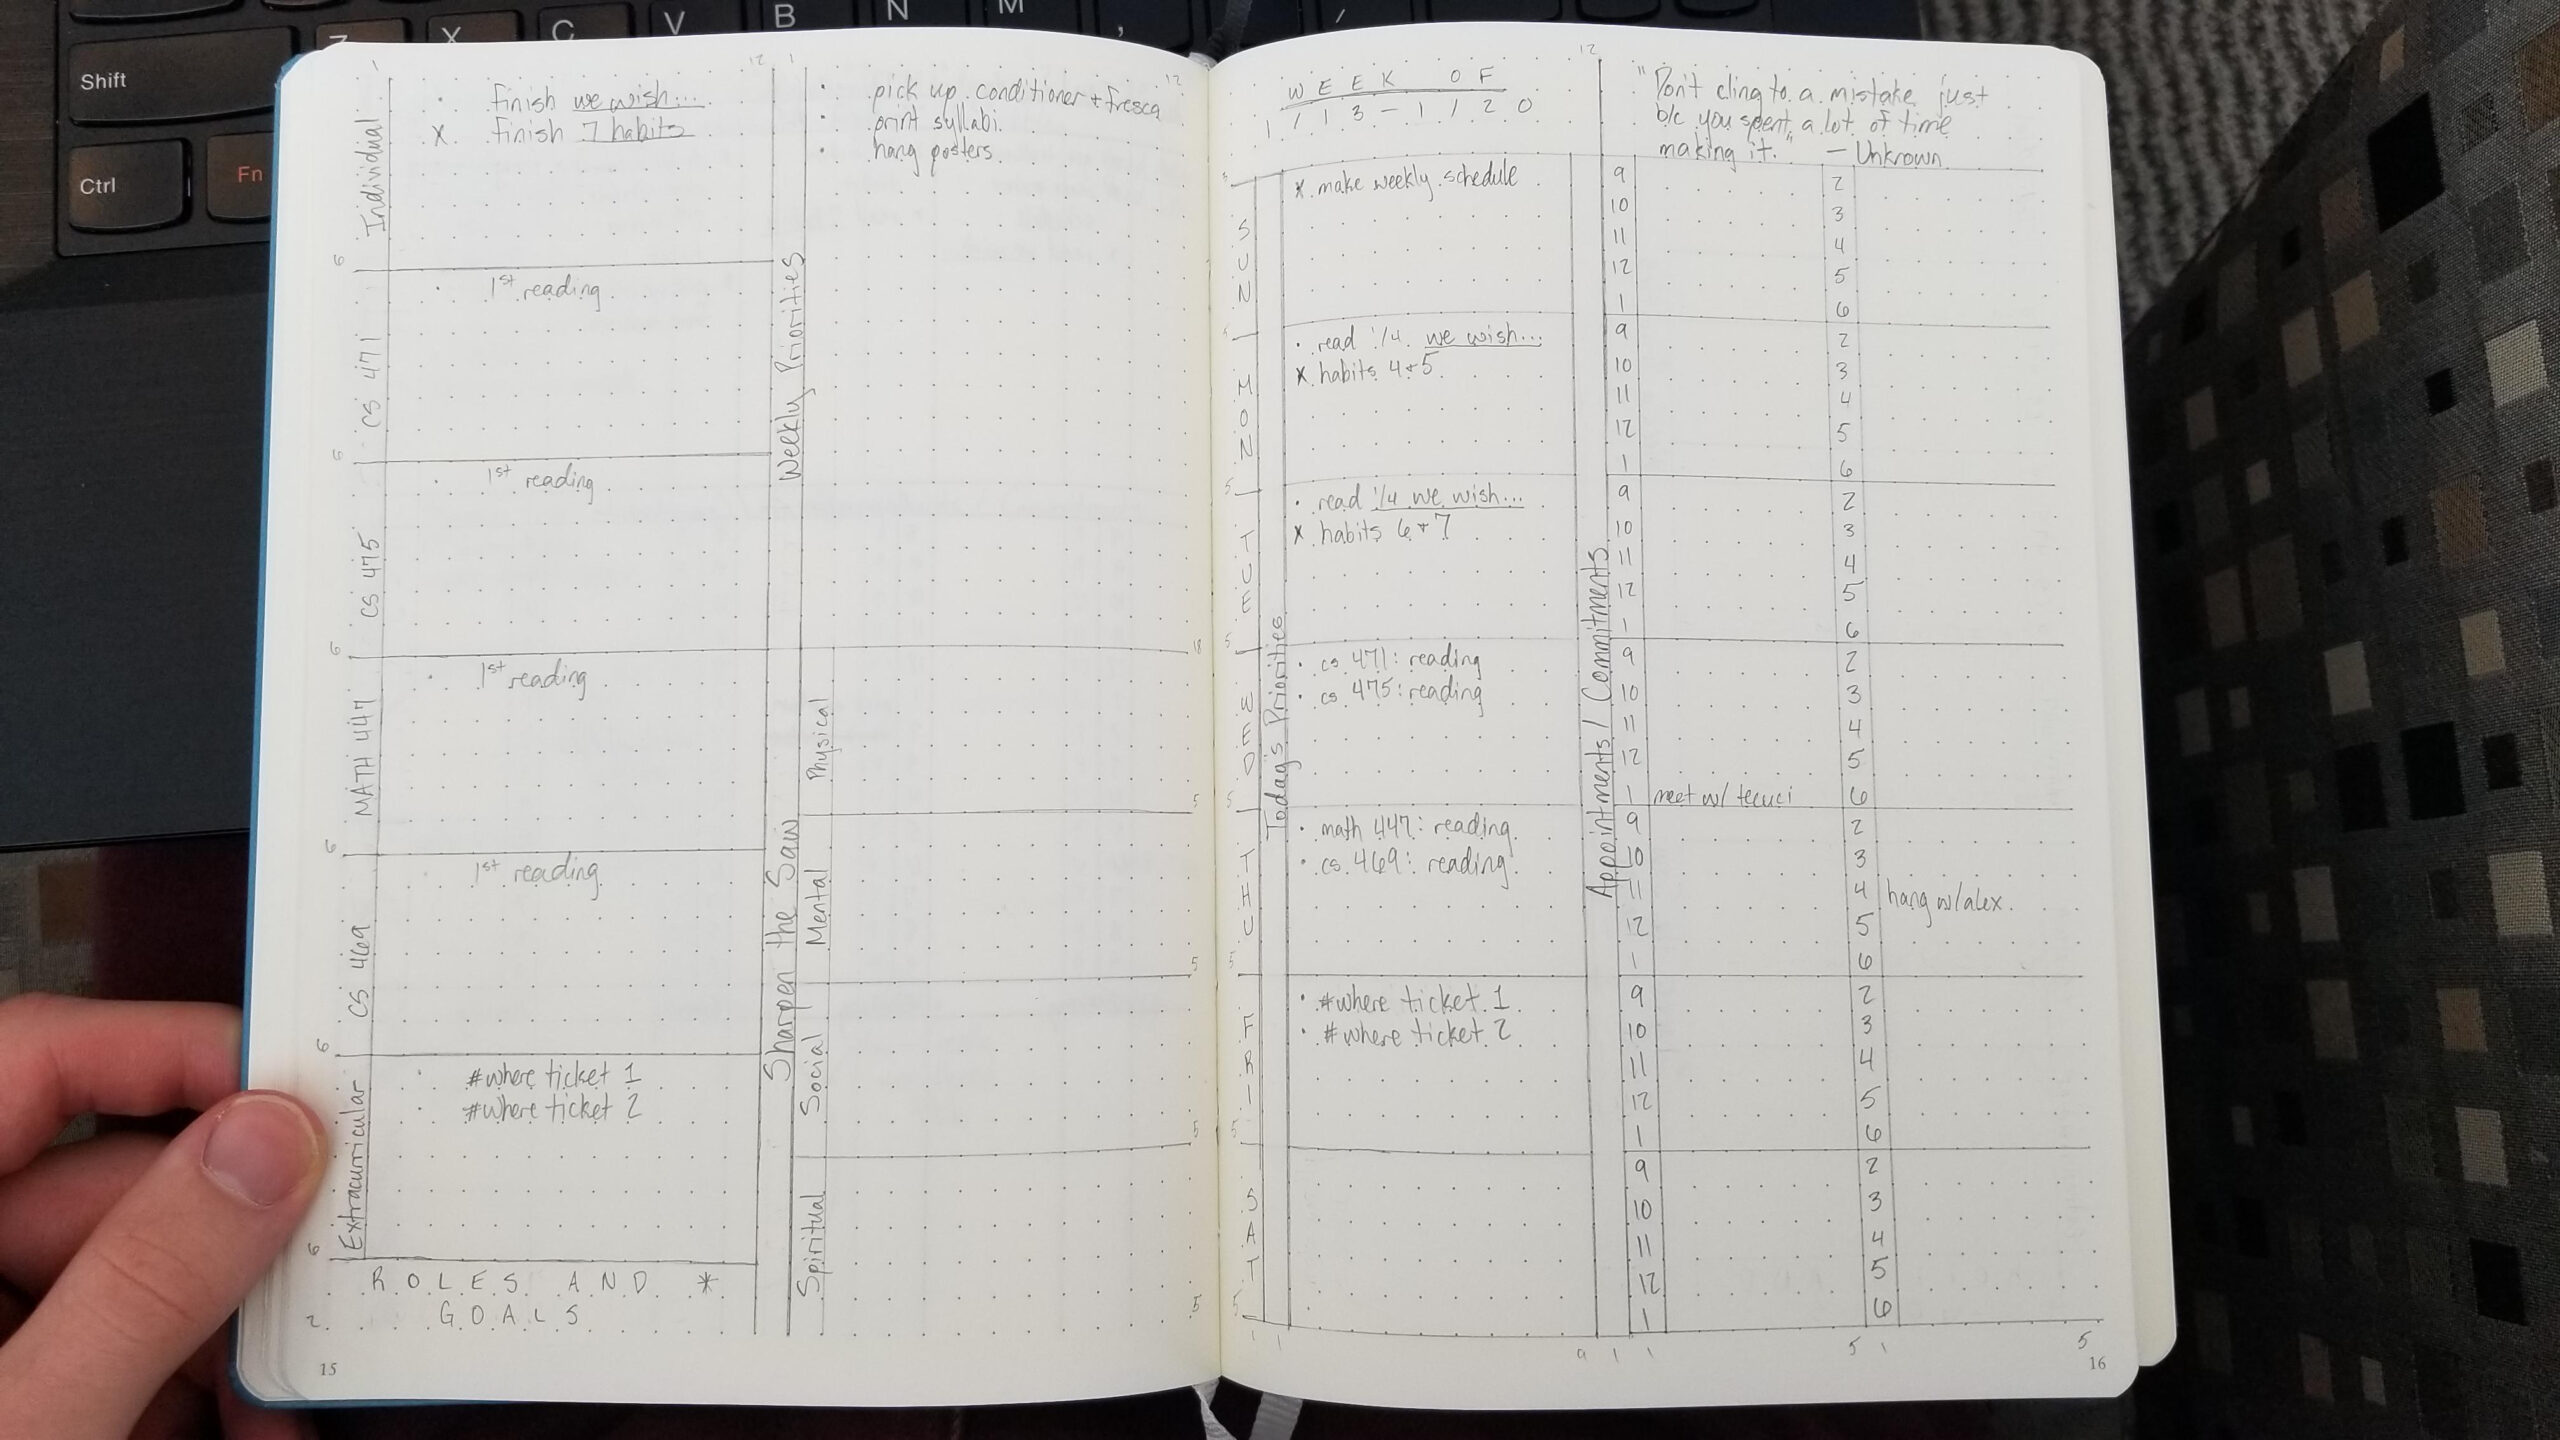 Shift
Ctrl
Fn
Z X C V B N M , /
1
12
1
12
Individual
finish we wish...
x finish 7 habits
6
CS 471
1st reading
6
CS 475
1st reading
6
MATH 447
1st reading
6
CS 469
1st reading
6
Extracurricular
#where ticket 1
#where ticket 2
6
ROLES AND *
GOALS
2
15
Weekly Priorities
· pick up conditioner + fresca
· print syllabi
· hang posters
18
Sharpen the Saw
Physical
5
Mental
5
Social
5
Spiritual
5
WEEK OF
1/13-1/20
12
"Don't cling to a mistake just
b/c you spent a lot of time
making it." - Unknown
Today's Priorities
Appointments / Commitments
SUN
x make weekly schedule
9 2
10 3
11 4
12 5
1 6
5
MON
· read 1/4 we wish...
x habits 4+5
9 2
10 3
11 4
12 5
1 6
5
TUE
· read 1/4 we wish...
x habits 6+7
9 2
10 3
11 4
12 5
1 6
5
WED
· cs 471: reading
· cs 475: reading
9 2
10 3
11 4
12 5
1 meet w/ tecuci 6
5
THU
· math 447: reading
· cs 469: reading
9 2
10 3
11 4 hang w/alex
12 5
1 6
5
FRI
· #where ticket 1
· #where ticket 2
9 2
10 3
11 4
12 5
1 6
5
SAT
9 2
10 3
11 4
12 5
1 6
5
1 1 9 1 1 5 1 5
16